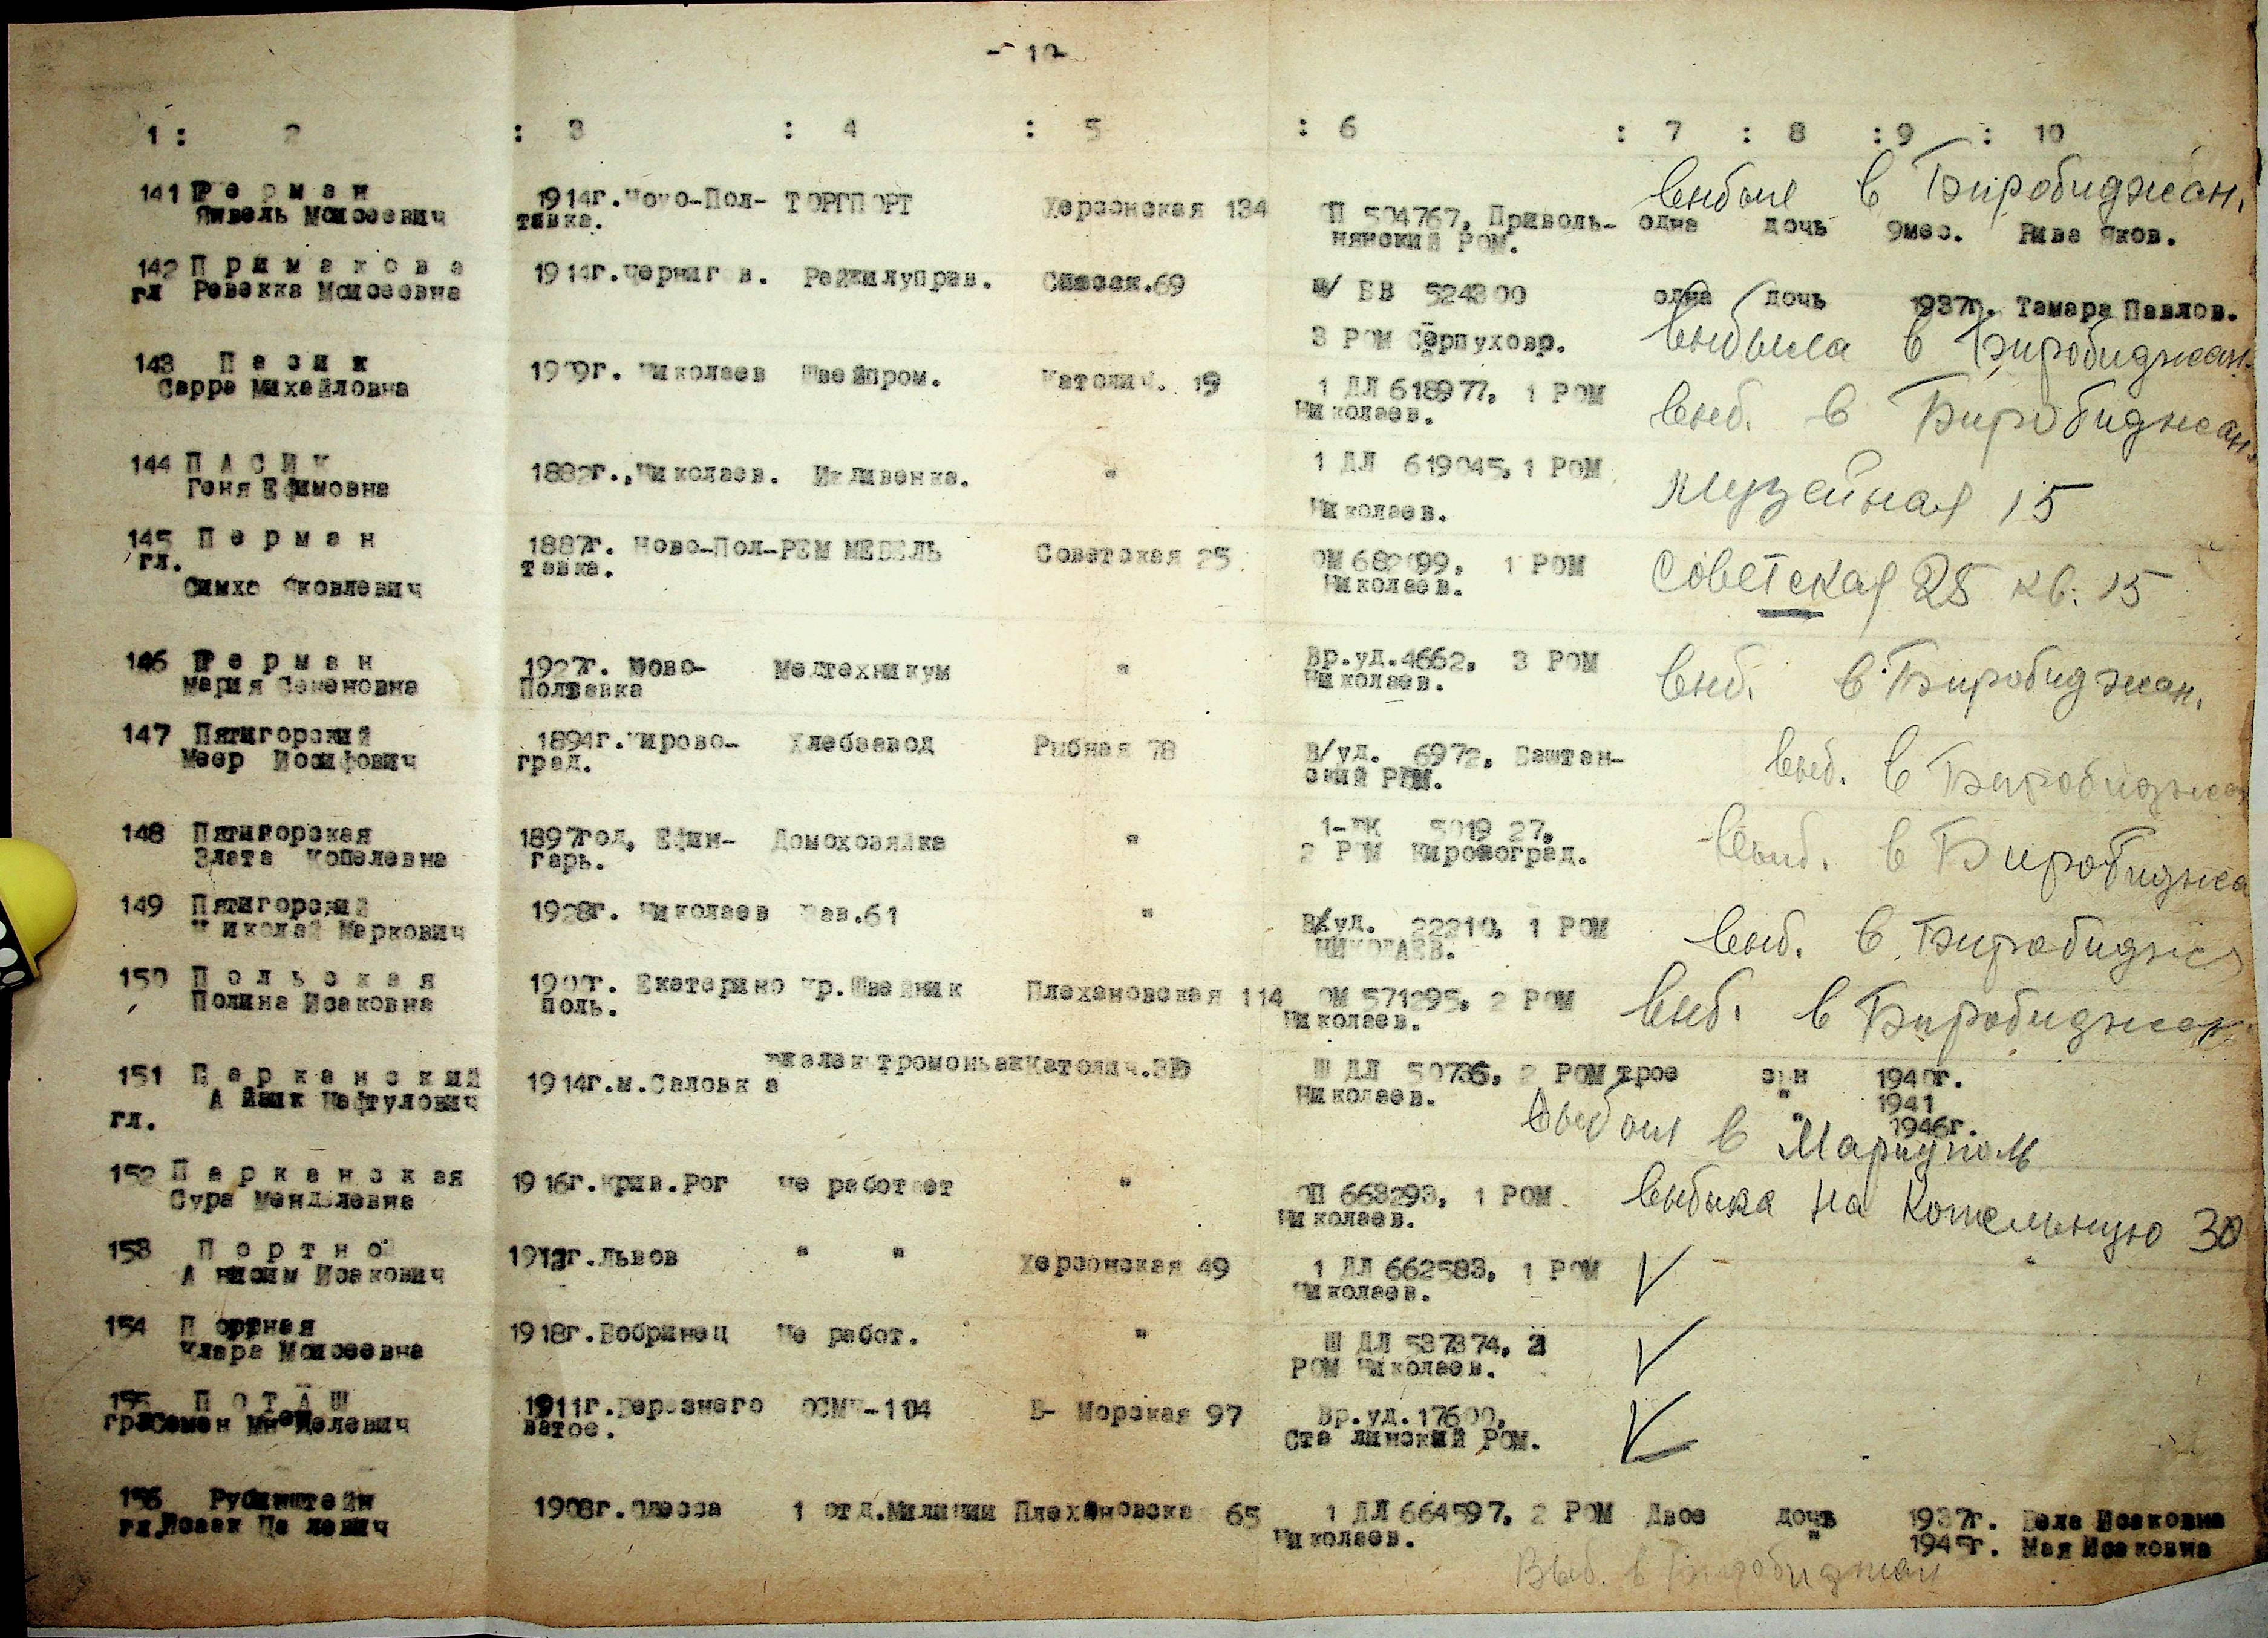 - 10-
1 : 2 : 3 : 4 : 5 : 6 : 7 : 8 : 9 : 10
выбыл в Биробиджан.
141 П е р м а н 1914г. Ново-Пол- ТОРГПОРТ Херсонская 134 ОП 504767, Приволь- одна дочь 9мес. Рива Яков.
Янвель Моисеевич тавка. нянский РОМ.
142 П р и м а к о в а 1914г.Чернигов. Райжилуправ. Спасск.69 Ш/ ВВ 524300 одна дочь 1937г. Тамара Павлов.
гл Ревекка Моисеевна
3 РОМ Серпуховр. выбыла в Биробиджан.
143 П а с и к 1909г. Николаев Швейпром. Католич. 19 1 ДЛ 618977, 1 РОМ выб. в Биробиджан.
Сарра Михайловна Николаев.
144 П А С И К 1882г.,Николаев. Иждивенка. " 1 ДЛ 619045, 1 РОМ Музейная 15
Геня Ефимовна Николаев.
145 П е р м а н 1887г. Ново-Пол- РЕМ МЕБЕЛЬ Советская 25 ОМ 682099, 1 РОМ Советская 25 кв. 15
гл. тавка. Николаев.
Симха Яковлевич
146 П е р м а н 1927г. Ново- Медтехникум " Вр.уд.4662, 3 РОМ выб. в Биробиджан.
Мария Семеновна Полтавка Николаев.
147 Пятигорский 1894г.Кирово- Хлебзавод Рыбная 78 В/уд. 6972, Баштан- выб. в Биробиджан
Меер Иосифович град. ский РОМ.
148 Пятигорская 1897год, Ефин- Домохозяйка " 1-ТК 5019 27, выб. в Биробиджа
Злата Копелевна гарь. 2 РОМ Кировоград.
149 Пятигорский 1928г. Николаев Зав.61 " В/уд. 22210, 1 РОМ выб. в Биробиджа
Николай Маркович НИКОЛАЕВ.
150 П о л ь с к а я 1900г. Екатерино кр.Швейник Плехановская 114 ОМ 571295, 2 РОМ выб. в Биробиджан
Полина Исаковна поль. Николаев.
151 П а р к а н с к и й 1914г.м.Саловка Католич. Ш ДЛ 50736, 2 РОМ трое сын 1940г.
Айзик Нафтулович Николаев. " 1941
гл. " 1946г.
выбыл в Мариуполь
152 П а р к а н с к а я 1916г.Крив.Рог не работает " ОП 663293, 1 РОМ выбыла на Котельную 30
Сура Менделевна Николаев.
153 П о р т н о й 1912г.Львов " " Херсонская 49 1 ДЛ 662583, 1 РОМ
Анисим Исакович Николаев.
154 П ортная 1918г.Бобринец Не работ. " Ш ДЛ 537374, 2
Клара Моисеевна РОМ Николаев.
155 П О Т А Ш 1911г.Березнего ОСМЧ-104 Б- Морская 97 Вр.уд.17600,
Семен Менделевич ватое. Сталинский РОМ.
156 Рубинштейн 1908г.Одесса 1 отд.Милиции Плехановская 65 1 ДЛ 664597, 2 РОМ Двое дочь 1937г. Бела Исаковна
гл.Исаак Цалевич Николаев. " 1945г. Мая Исаковна
Выб. в Биробиджан